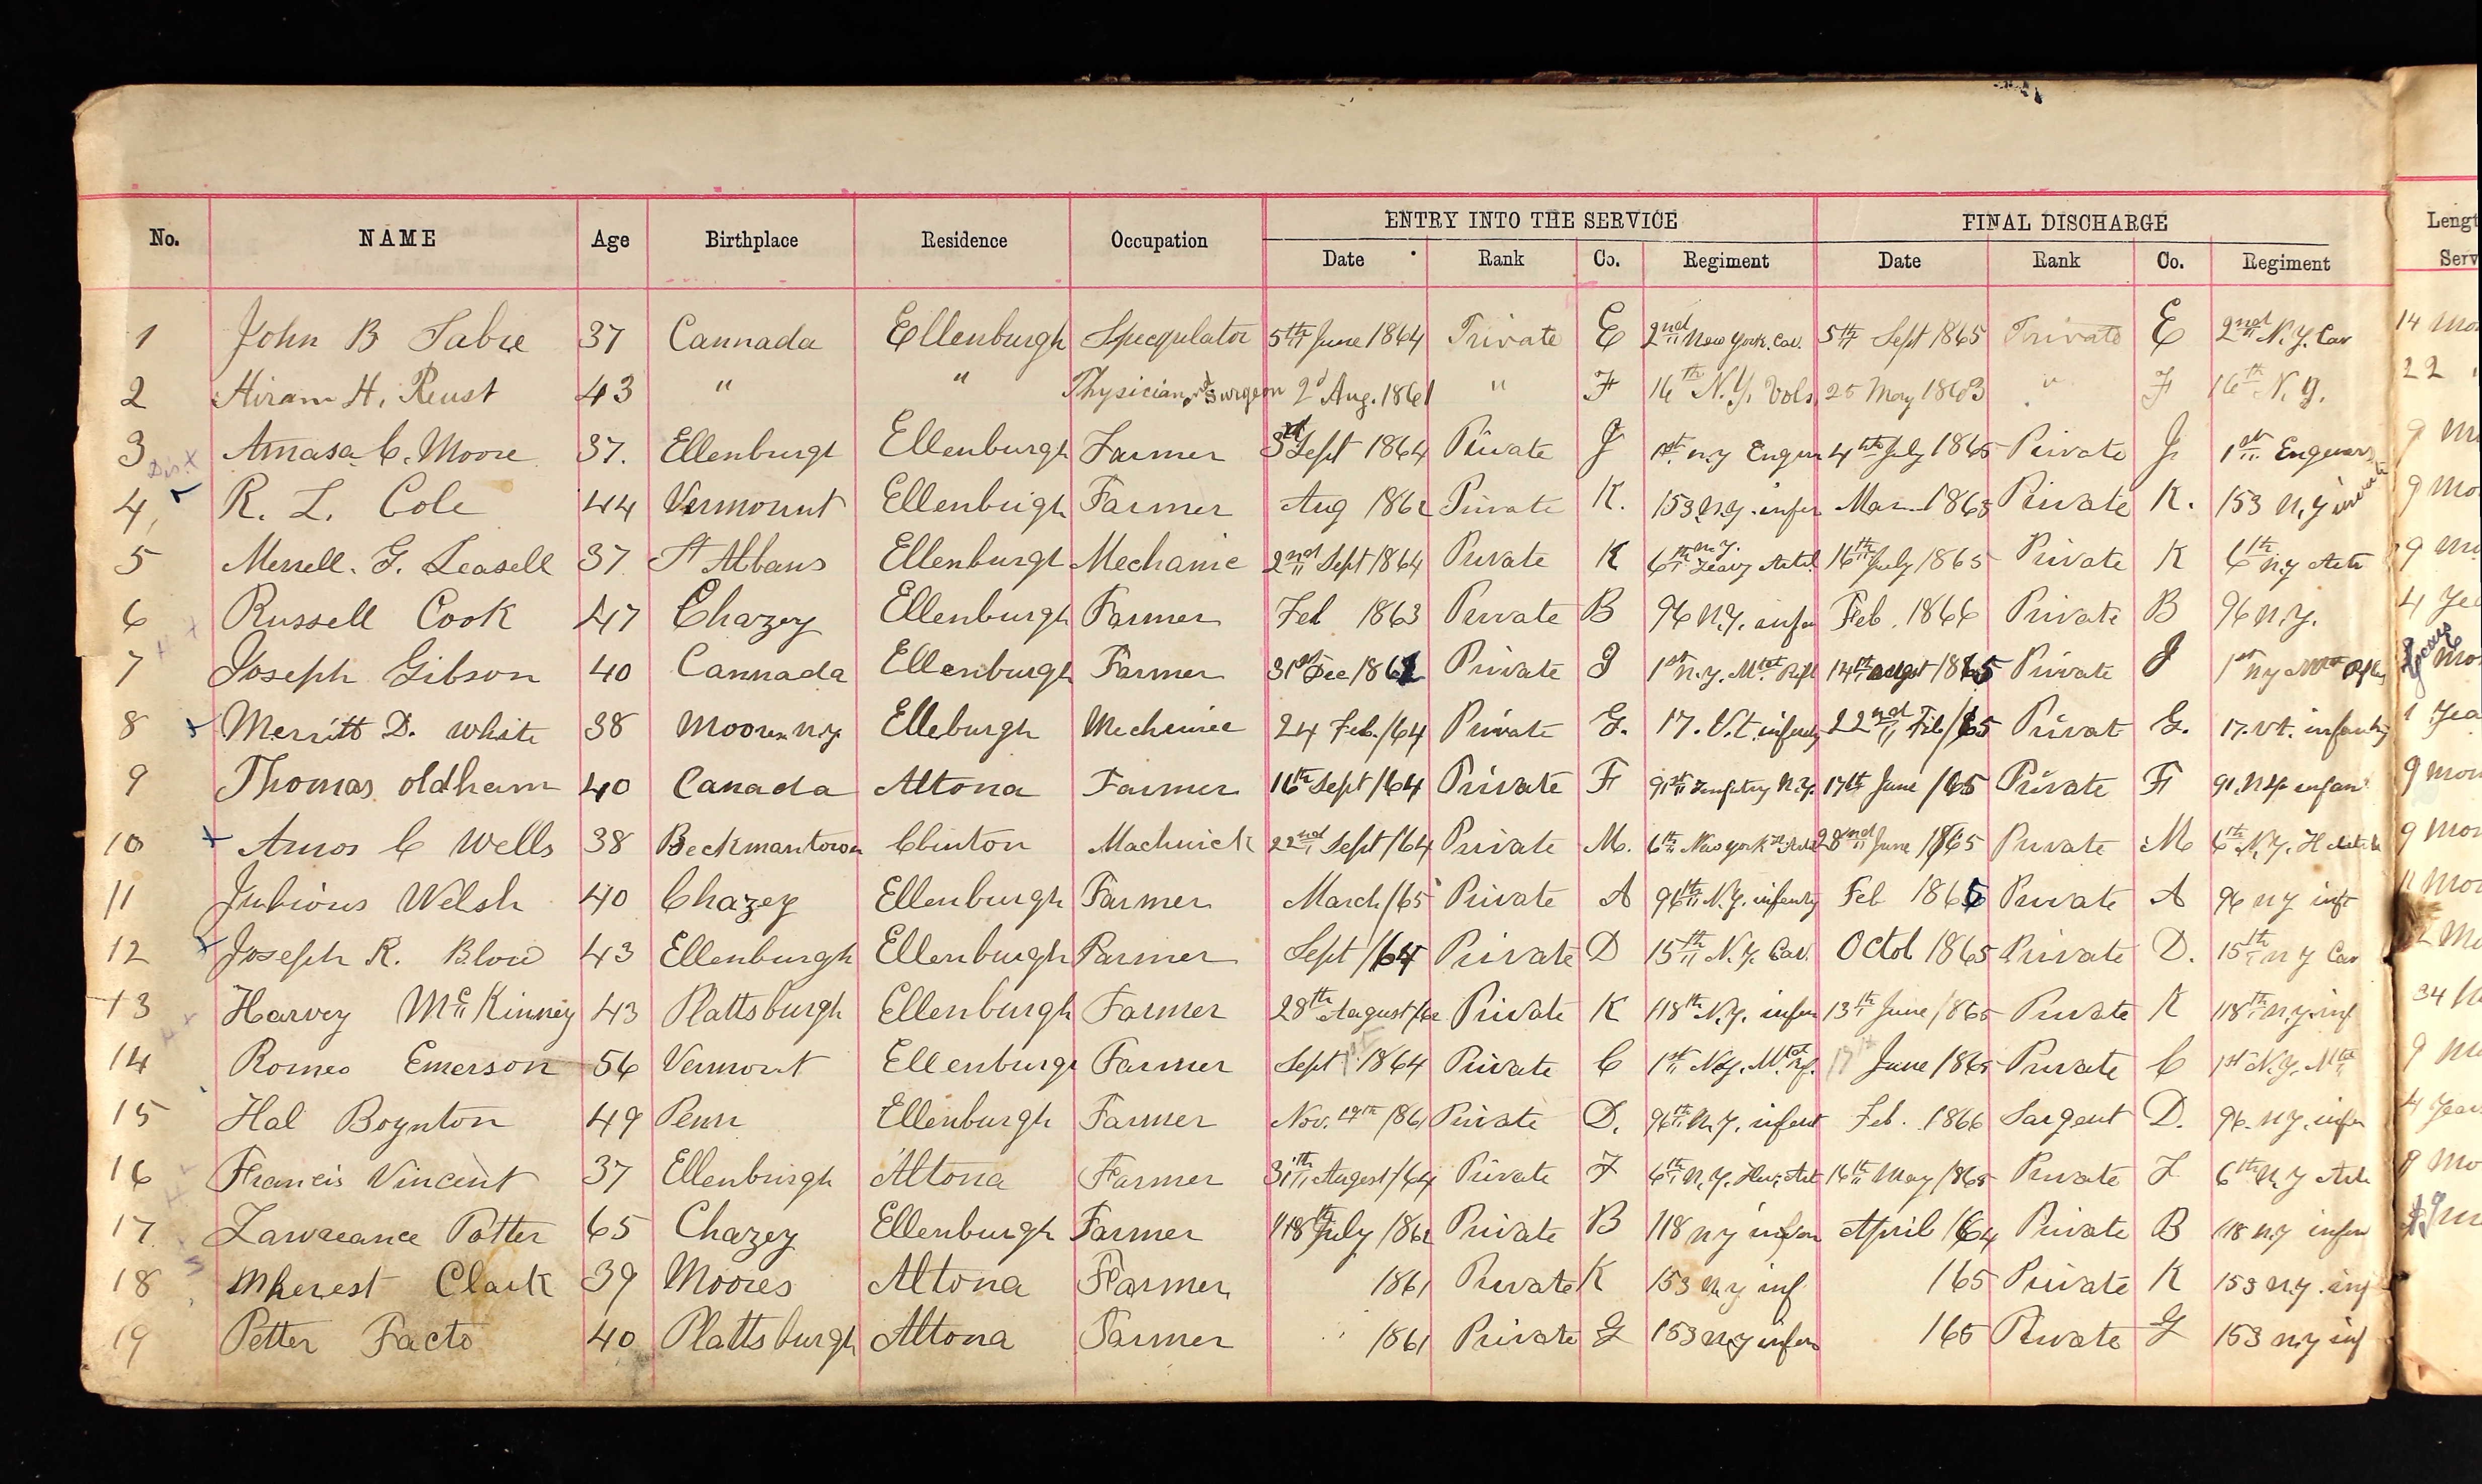 ENTRY INTO THE SERVICE FINAL DISCHARGE Lengt
No. NAME Age Birthplace Residence Occupation Date Rank Co. Regiment Date Rank Co. Regiment Serv
1 John B Sabre 37 Cannada Ellenburgh Specqulator 5th June 1864 Private E 2nd New York. Cav. 5th Sept 1865 Private E 2nd N.Y. Cav 14 mo
2 Hiram H. Reust 43 " " Physician & Surgeon 2d Aug. 1861 " F 16th N.Y. Vols 25 May 1863 " F 16th N.Y. 22
3 Amasa C. Moore 37. Ellenburgh Ellenburgh Farmer Sept 1864 Private J 1st n.y Engin 4th July 1865 Private J 1st Engeners 9 m
4, R. L. Cole 44 Vermount Ellenburgh Farmer Aug 1862 Private K. 153 N.y. infen Mar. 1865 Private K. 153 N,y 9 mo
5 Merrell. G. Leasell 37 St Albans Ellenburgh Mechanic 2nd Sept 1864 Private K 6th n.y. Heavy Artil 16th July 1865 Private K 6th n.y Arte 9 m
6 Russell Cook 47 Chazey Ellenburgh Farmer Feb 1863 Private B 96 N.Y. infen Feb. 1866 Private B 96 N.Y. 4 yea
7 Joseph Gibson 40 Cannada Ellenburgh Farmer 31st Dec 1861 Private J 1st N.y. Mtd Rifl 14th augst 1865 Private J 1st ny Mtd Rifls mo
8 Merritt D. White 38 Moores n.y. Elleburgh Mechenice 24 Feb./64 Private G. 17. V.t. infenty 22nd Feb/65 Privat G. 17. vt. infantry 1 yea
9 Thomas oldham 40 Canada Altona Farmer 16th Sept/64 Private F 91st Infntry N.y. 17th June /65 Private F 91. N.y. infan 9 mon
10 Amos C Wells 38 Beckmantown Clinton Machnick 22nd Sept/64 Private M. 6th New york 28nd June 1865 Private M 6th N.Y. H 9 mon
11 Julious Welsh 40 Chazey Ellenburgh Farmer March/65 Private A 96th N.Y. infenty Feb 1866 Private A 96 n y inft 11 mon
12 Joseph R. Blow 43 Ellenburgh Ellenburgh Farmer Sept/64 Private D 15th N.Y. Cav. Octob 1865 Private D. 15th n y Cav 12 mo
13 Harvey Mc Kinney 43 Plattsburgh Ellenburgh Farmer 28th August/62 Private K 118th N.Y. infen 13th June/865 Private K 118th n.y. inf 34 m
14 Romeo Emerson 56 Vermont Ellenburgh Farmer Sept 1864 Private C 1st N.y. Mtd Rf. 17th June 1865 Private C 1st N.Y. Mtd 9 m
15 Hal Boynton 49 Penn Ellenburgh Farmer Nov. 19th 1861 Private D. 96th n.y. infent Feb. 1866 Sargent D. 96. n y. infen 4 year
16 Francis Vincent 37 Ellenburgh Altona Farmer 31th August/64 Private F 6th N.Y. Hev. Art 16th May/865 Private F 6th N.Y Arte 8 mo
17 Lawreance Potter 65 Chazey Ellenburgh Farmer 18th July 1862 Private B 118 n y infen April /64 Private B 118 n.y infen
18 Mherest Clark 39 Moores Altona Farmer 1861 Private K 153 n y inf 165 Private K 153 n.y. inf
19 Petter Facto 40 Plattsburgh Altona Farmer 1861 Private G 153 n y infen 165 Private G 153 n.y inf